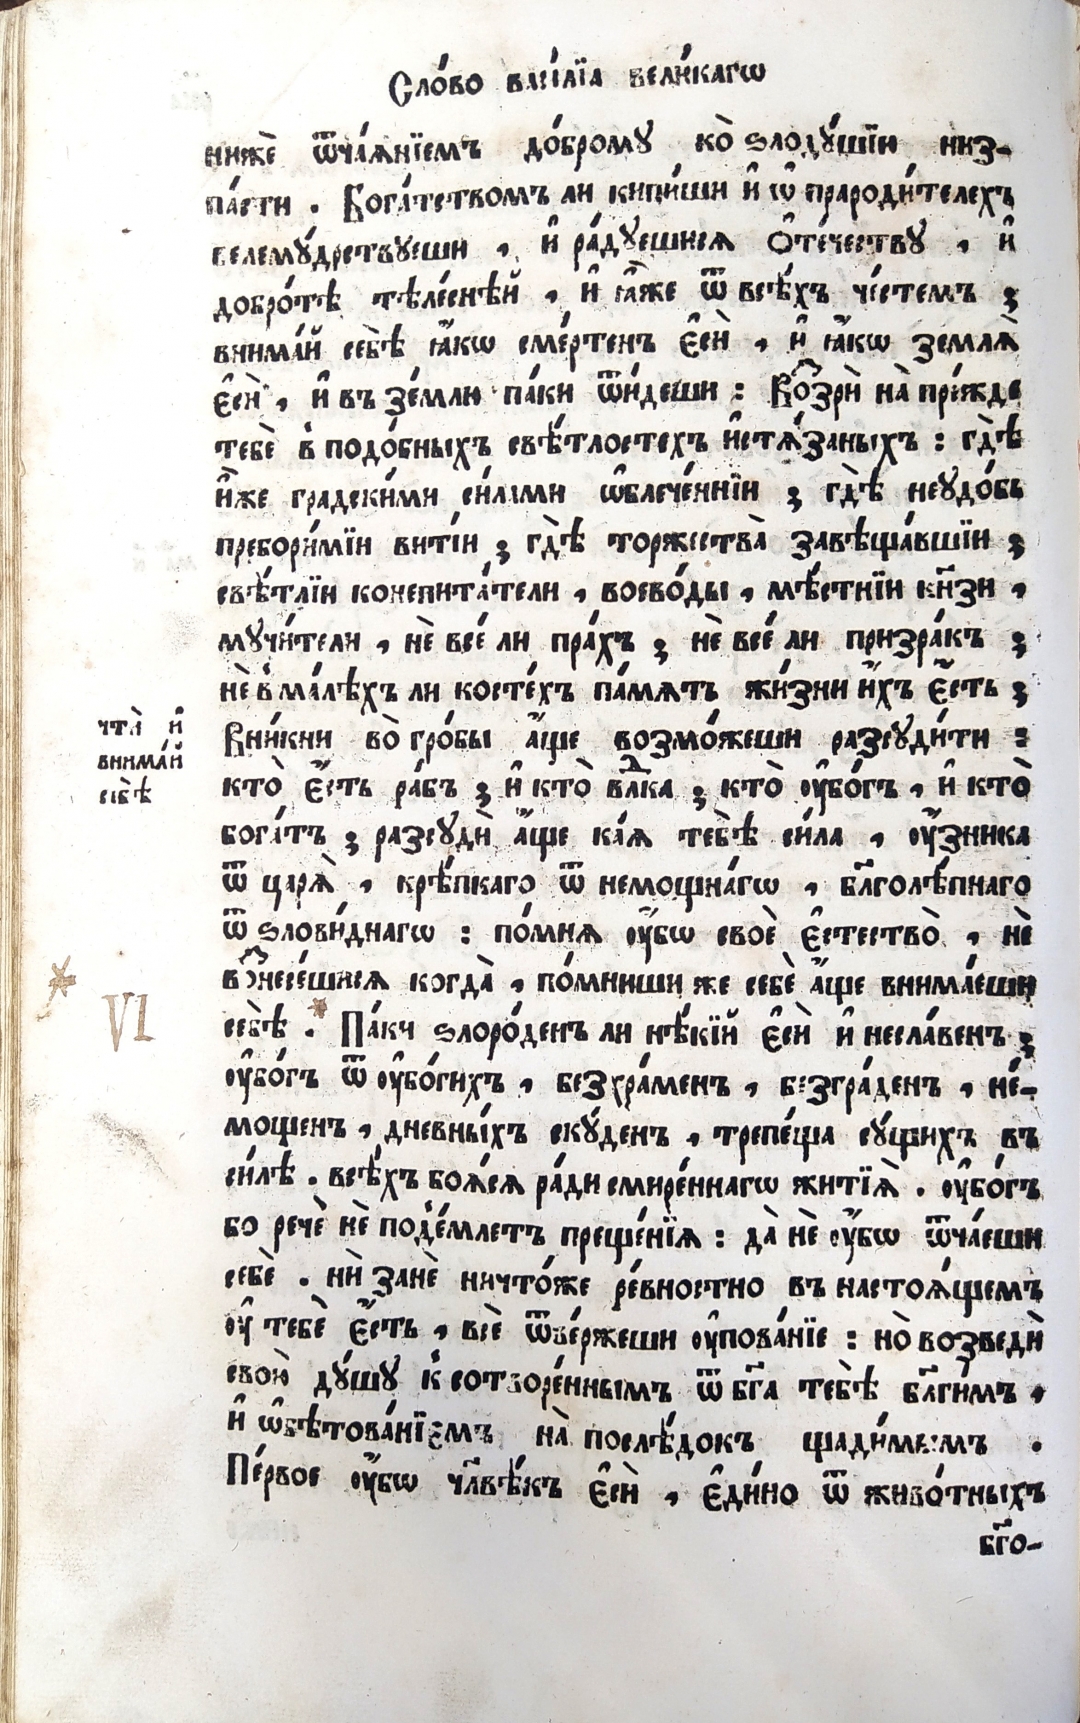 Сло́во васи́лїа вели́кагѡ
нижѐ ѿча́ѧнїемъ до́брому ко̀ ѕлоду́шїи низ-
па́сти . Бога́тствомъ ли кипи́ши и҆ ѡ҆ прароди́телехъ
велему́дрствуеши , и҆ ра́дуешисѧ ѻ҆те́честву , и҆
добро́тѣ тѣле́снѣй , и҆ ꙗ҆́же ѿ всѣ́хъ че́стемъ ;
внима́й себѣ̀ ꙗ҆́кѡ сме́ртенъ є҆сѝ , и҆ ꙗ҆́кѡ землѧ̀
є҆сѝ , и҆ въ зе́млю па́ки ѿи́деши : Во́зрѝ на̀ пре́жде
тебѐ в̾ подо́бныхъ свѣ́тлостехъ и҆стѧ́заныхъ : гдѣ̀
и҆̀же градски́ми си́лами ѡ҆блече́ннїи ; гдѣ̀ неудо́бь
пребори́мїи вити́и ; гдѣ̀ торжества̀ завѣща́вшїи ;
свѣ́тлїи конепита́тели , воево́ды , мѣ́стнїи кн҃зи ,
мучи́тели , нѐ все́ ли пра́хъ ; нѐ все́ ли призра́къ ;
нѐ в̾ ма́лѣхъ ли косте́хъ па́мѧть жи́зни и҆́хъ є҆́сть ;
чтѝ и҆
Вни́кни во̀ гро́бы а҆́ще возмо́жеши разсуди́ти :
внима́й
кто̀ є҆́сть ра́бъ ; и҆ кто̀ влⷣка ; кто̀ ᲂу҆бо́гъ , и҆ кто̀
себѣ̀
бога́тъ ; разсудѝ а҆́ще ка́ѧ тебѣ̀ си́ла , ᲂу҆́зника
ѿ царѧ̀ , крѣ́пкаго ѿ немощна́гѡ , бл҃голѣ́пнаго
ѿ ѕлови́днагѡ : по́мнѧ ᲂу҆́бѡ своѐ є҆стество̀ , нѐ
воⷥнесе́шисѧ когда̀ , по́мниши же себѐ а҆́ще внима́еши
VI
себѣ̀ . Па́ки ѕлоро́денъ ли нѣ́кїй є҆сѝ и҆ несла́венъ ;
ᲂу҆бо́гъ ѿ ᲂу҆бо́гихъ , безхра́менъ , безгра́денъ , не́-
мощенъ , дневны́хъ ску́денъ , трепе́ща су́щихъ въ
си́лѣ . всѣ́хъ боѧ́сѧ ра́ди смире́ннагѡ житїѧ̀ . ᲂу҆бо́гъ
бо речѐ нѐ под̾е́млетъ преще́нїѧ : да̀ нѐ ᲂу҆́бѡ ѿча́еши
себѐ . нѝ занѐ ничто́же ре́вностно въ настоѧ́щемъ
ᲂу҆ тебѐ є҆́сть , всѐ ѿве́ржеши ᲂу҆пова́нїе : но̀ возведѝ
свою̀ ду́шу к̾ сотворе́ннымъ ѿ бг҃а тебѣ̀ бл҃ги́мъ ,
и҆ ѡ҆бѣтова́нїемъ на̀ послѣ́докъ щади́мымъ .
Пе́рвое ᲂу҆́бѡ чл҃вѣ́къ є҆сѝ , є҆ди́но ѿ живо́тныхъ
бг҃о-